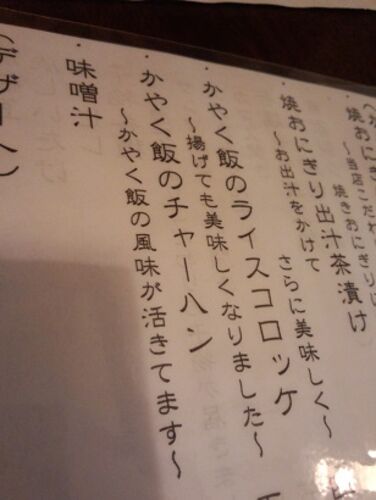 ・焼おにぎり
〜当店こだわり
焼きおにぎりに
・焼おにぎり出汁茶漬け
〜お出汁をかけて さらに美味しく〜
・かやく飯のライスコロッケ
〜揚げても美味しくなりました〜
・かやく飯のチャーハン
〜かやく飯の風味が活きてます〜
・味噌汁
(デザート)